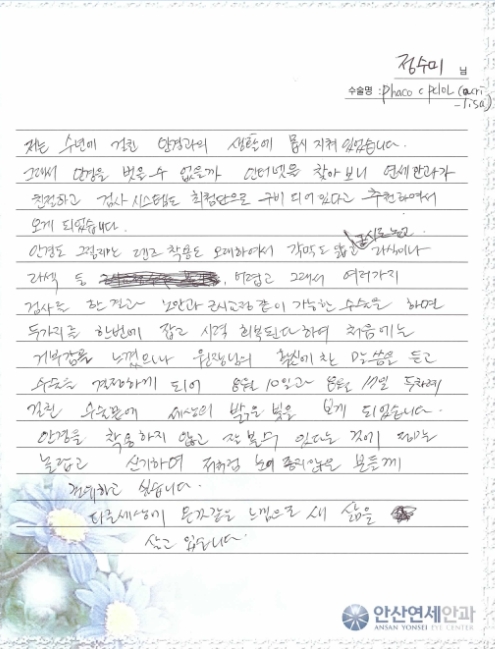 정수미 님
수술명 : phaco c pciol (acri
-Tisa)
저는 수년에 걸친 안경과의 생활에 몹시 지쳐 있었습니다.
그래서 안경을 벗을 수 없을까 인터넷을 찾아 보니 연세안과가
친절하고 검사 시스템도 최첨단으로 구비 되어 있다고 추천하여서
오게 되었습니다.
안경도 그렇지만 렌즈 착용도 오래하여서 각막도 얇고 근시도 높고 라식이나
라섹 등 어렵고 그래서 여러가지
검사를 한 결과 노안과 근시교정 같이 가능한 수술을 하면
두가지를 한번에 잡고 시력 회복된다 하여 처음에는
거부감을 느꼈으나 원장님의 확신에 찬 말씀을 듣고
수술을 결정하게 되어 8월 10일과 8월 17일 두차례
걸친 수술끝에 세상의 밝은 빛을 보게 되었습니다.
안경을 착용하지 않고 잘 볼수 있다는 것에
놀랍고 신기하며 저처럼 눈이 좋지않은 모든분께
권유하고 싶습니다.
다른세상에 온것같은 느낌으로 새 삶을
살고 있습니다.
안산연세안과
ANSAN YONSEI EYE CENTER